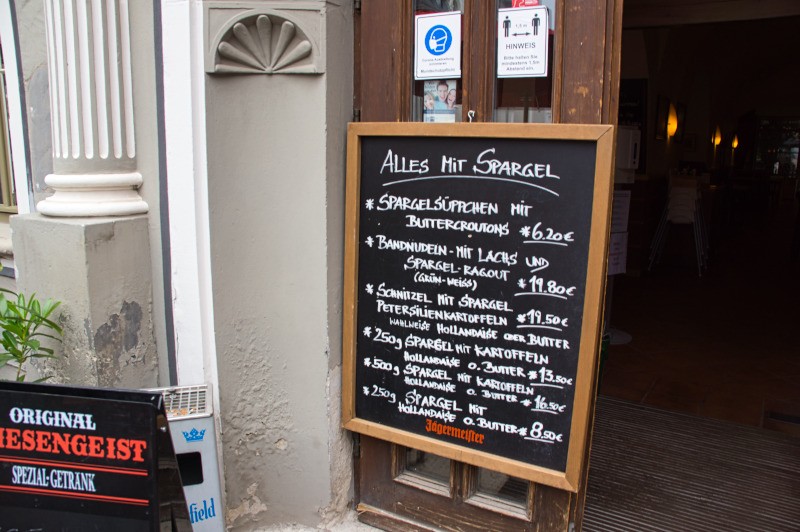 HINWEIS
ALLES MIT SPARGEL
* SPARGELSÜPPCHEN MIT
BUTTERCROUTONS * 6.20€
* BANDNUDELN - MIT LACHS UND
SPARGEL-RAGOUT
(GRÜN-WEISS) * 19.80€
* SCHNITZEL MIT SPARGEL
PETERSILIENKARTOFFELN * 19.50€
WAHLWEISE HOLLANDAISE ODER BUTTER
* 250g SPARGEL MIT KARTOFFELN
HOLLANDAISE O. BUTTER * 13.50€
* 500g SPARGEL MIT KARTOFFELN
HOLLANDAISE O. BUTTER * 16.50€
* 250g SPARGEL MIT
HOLLANDAISE O. BUTTER * 8.50€
Jägermeister
ORIGINAL
IESENGEIST
SPEZIAL-GETRÄNK
field